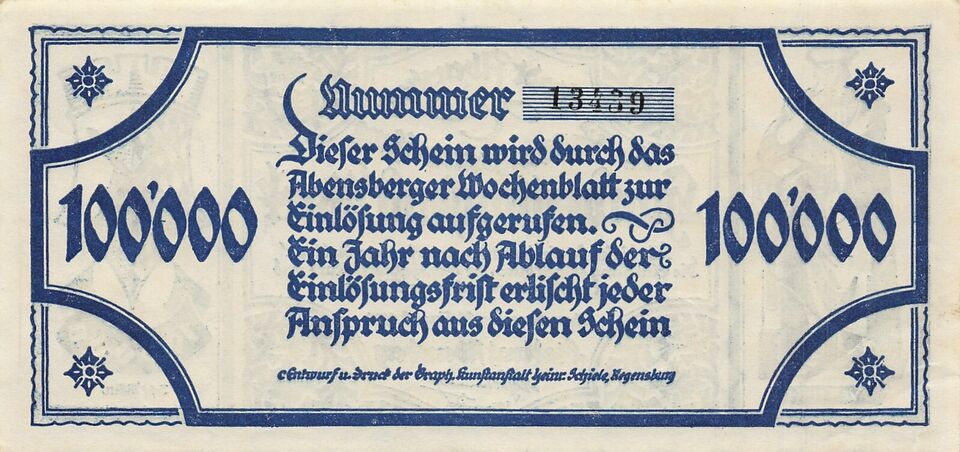 Nummer 13439
Dieser Schein wird durch das
Abensberger Wochenblatt zur
Einlösung aufgerufen.
Ein Jahr nach Ablauf der
Einlösungsfrist erlischt jeder
Anspruch aus diesen Schein
100'000
100'000
Entwurf u. Druck der Graph. Kunstanstalt Heinr. Schiele, Regensburg